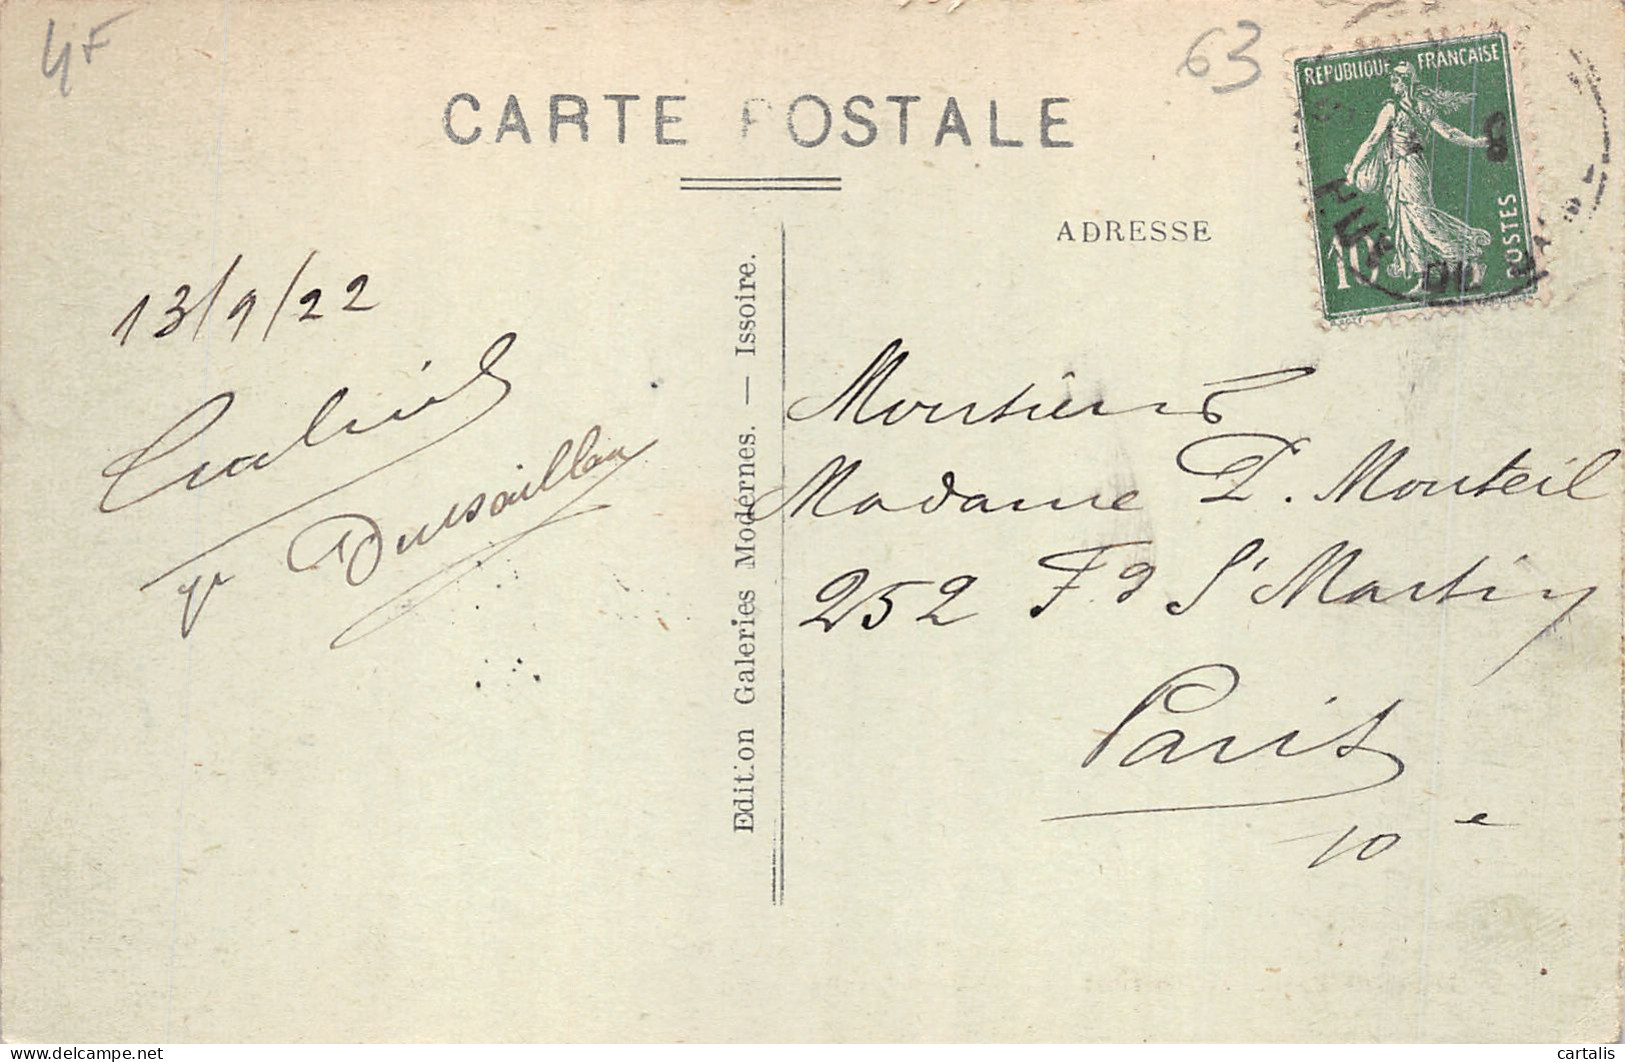 4F
63
CARTE POSTALE
REPUBLIQUE FRANÇAISE
10c
POSTES
PUY DE
ADRESSE
Edition Galeries Modernes. — Issoire.
13/9/22
Monsieur &
Madame P. Monteil
252 Fg St Martin
Paris
10e
cartalis